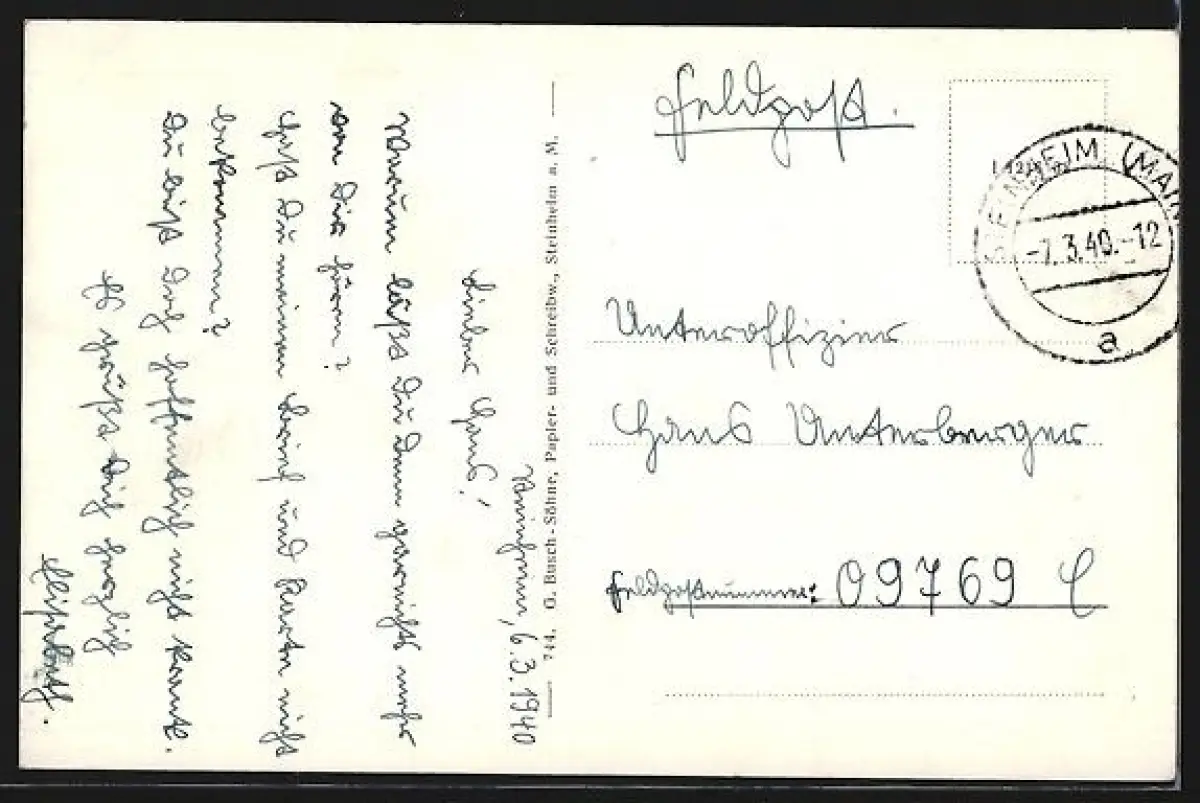 Feldpost.
STEINHEIM (MAIN
-7.3.40.-12
a
Unteroffizier
Hans Unterberger
Feldpostnummer: 09769 C
744. G. Busch-Söhne, Papier- und Schreibw., Steinheim a. M.
6.3.1940
Lieber Hans!
Warum läßt Du denn garnichts mehr
von Dir hören?
Hast Du meinen Brief und Karte nicht
bekommen?
Du bist doch hoffentlich nicht krank.
Es grüßt Dich herzlich